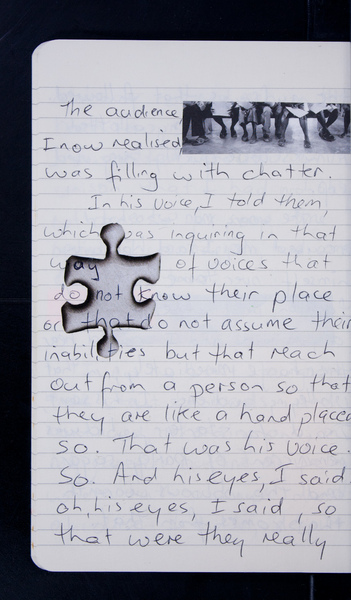 The audience,
I now realised,
was filling with chatter.
In his voice, I told them,
which was inquiring in that
way of voices that
do not know their place
or that do not assume their
inabilities but that reach
out from a person so that
they are like a hand placed
so. That was his voice.
So. And his eyes, I said,
oh, his eyes, I said, so
that were they really